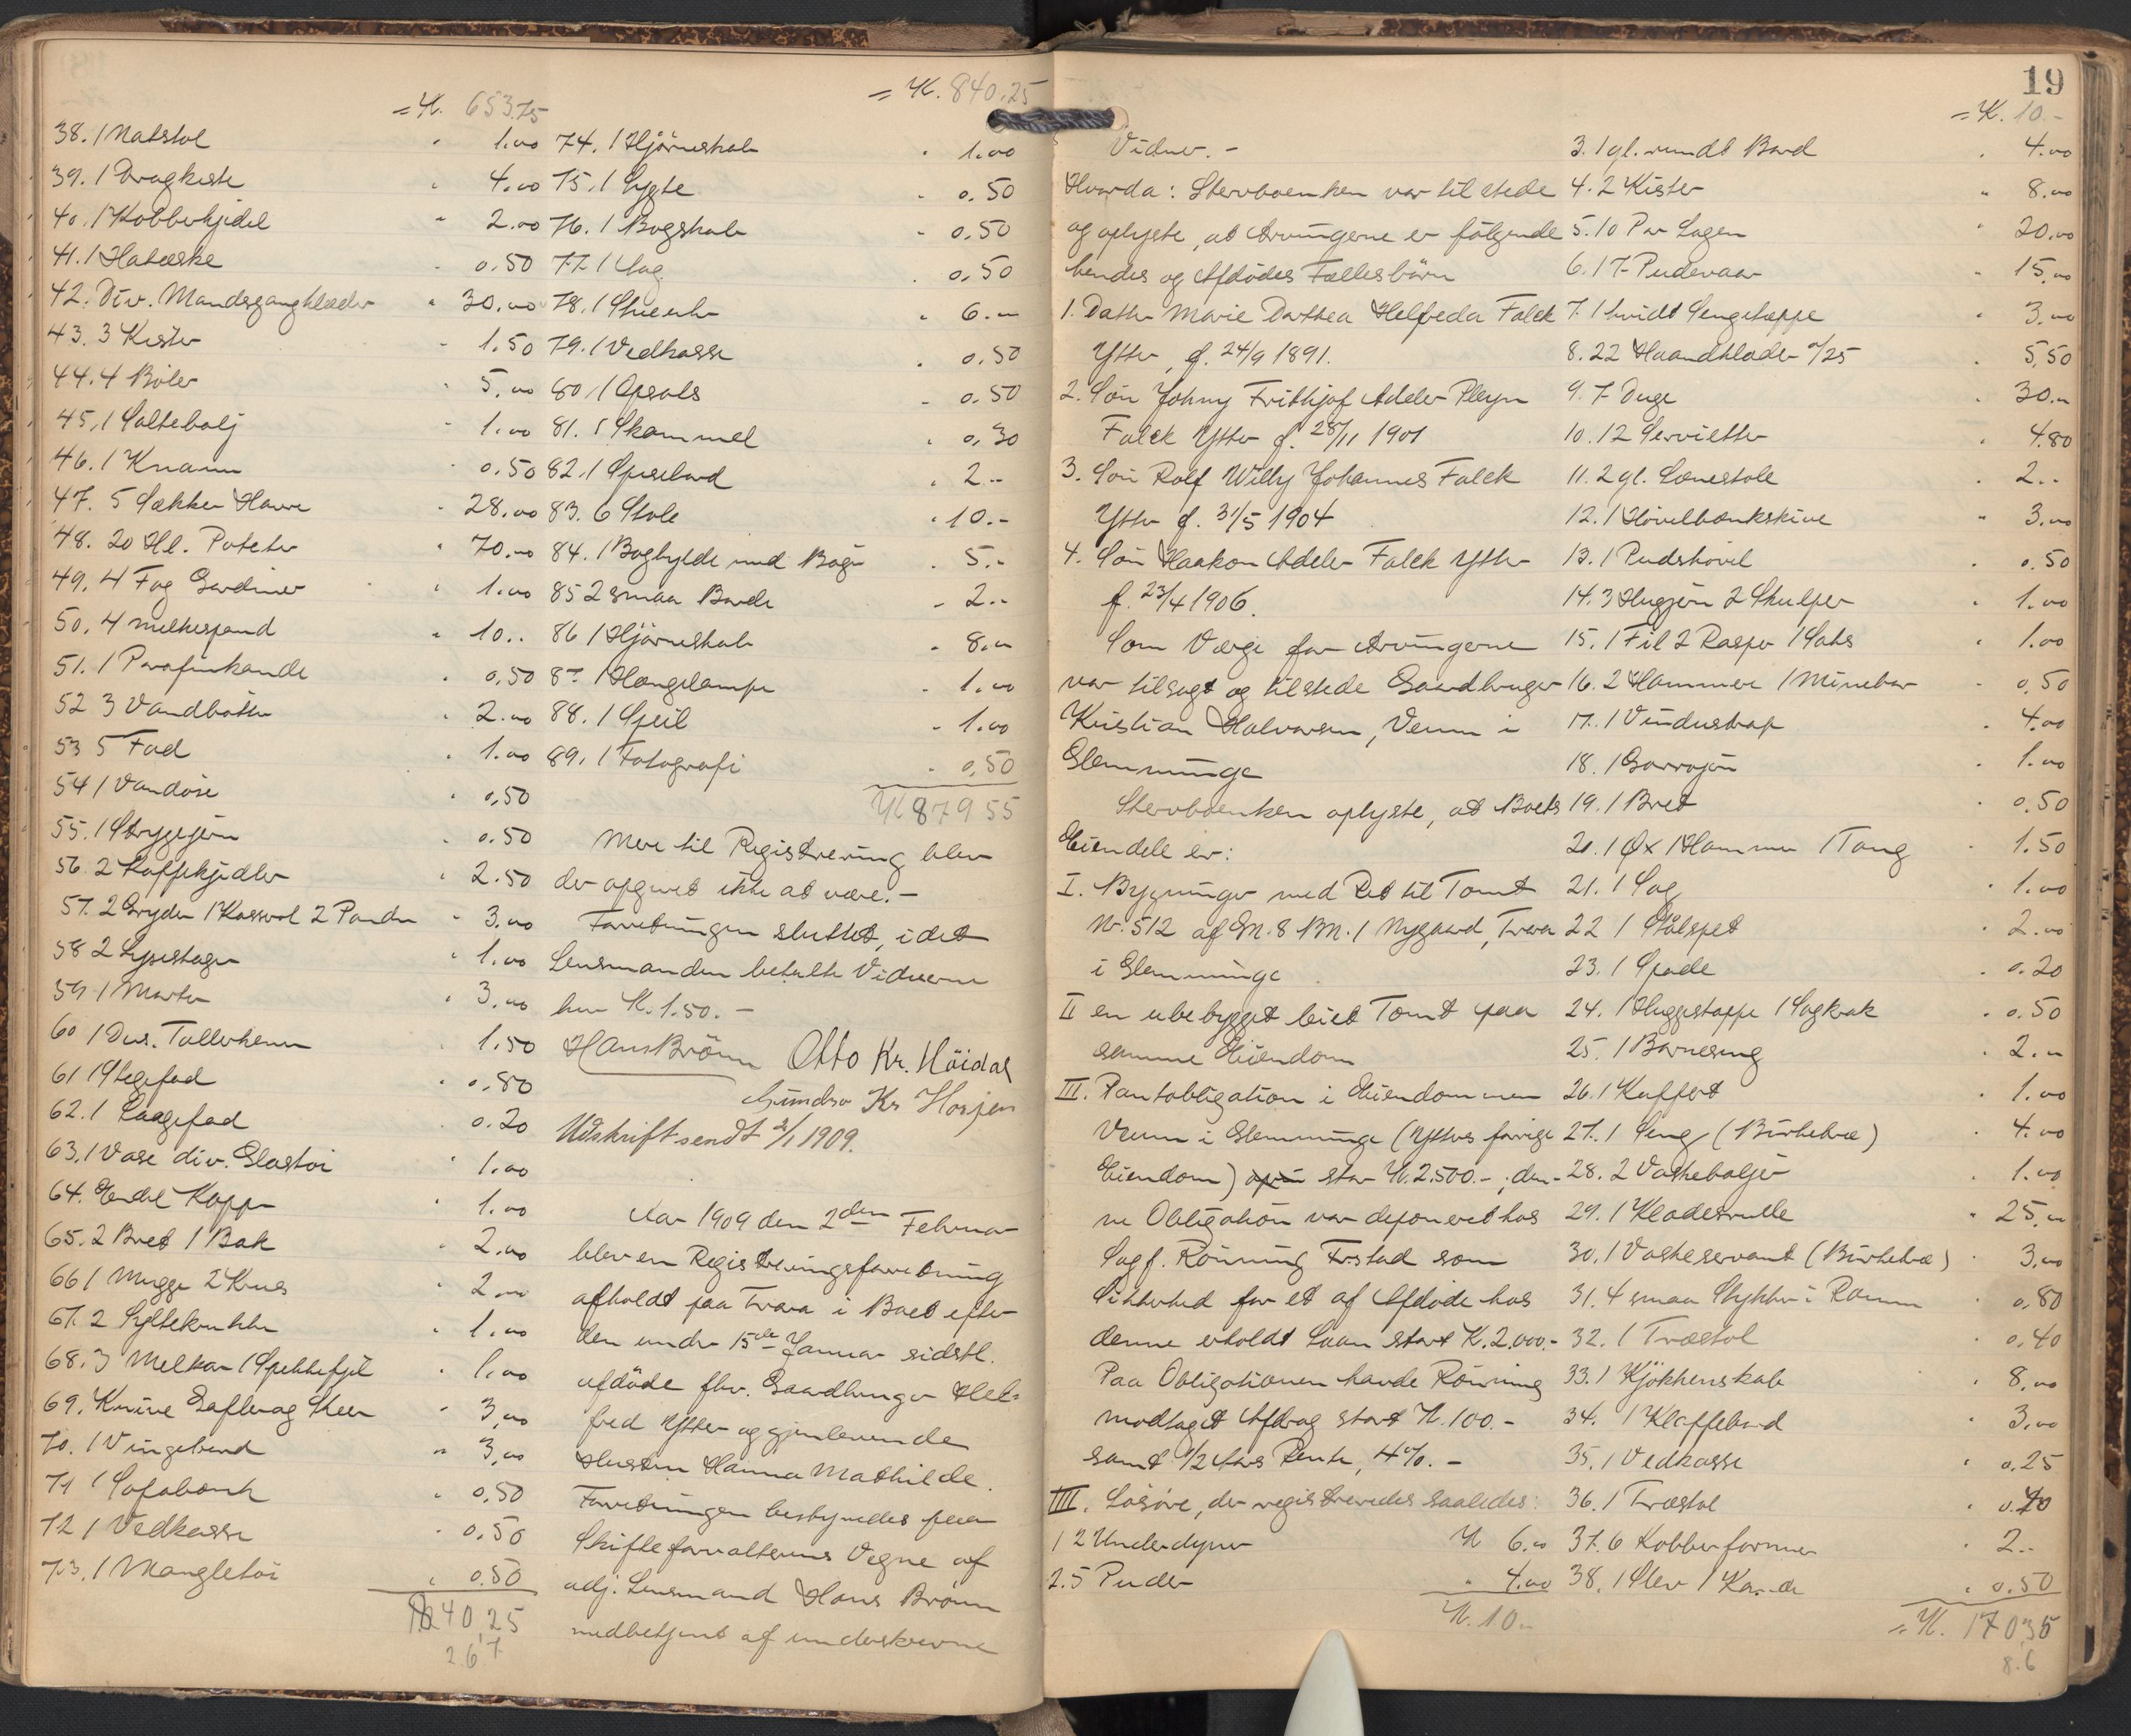 = K. 653.75
38. 1 Natstol " 1.00
39. 1 Dragkiste " 4.00
40. 1 Kobberkjedel " 2.00
41. 1 Hatæske " 0.50
42. Div. Mandsgangklæder " 30.00
43. 3 Kister " 1.50
44. 4 Böler " 5.00
45. 1 Saltebalj " 1.00
46. 1 Kvarn " 0.50
47. 5 Sækker Havre " 28.00
48. 20 Hl. Poteter " 70.00
49. 4 Fag Gardiner " 1.00
50. 4 melkespand " 10..
51. 1 Parafinkande " 0,50
52 3 Vandbötter " 2.00
53 5 Fad " 1.00
54 1 Vandöse " 0,50
55. 1 Strygejern " 0.50
56. 2 Kaffekjedler " 2.50
57. 2 Gryder 1 Kasserol 2 Pander " 3.00
58 2 Lysestager " 1.00
59 1 Morter " 3.00
60 1 Dus. Tallerkener " 1.50
61 1 Stegefad " 0.80
62. 1 Laagefad " 0.20
63. 1 Vase div. Glastöi " 1.00
64. Endel Kopper " 1.00
65. 2 Bret 1 Bak " 2.00
66 1 Mugge 2 Krus " 2.00
67. 2 Syltekrukker " 1.00
68. 3 Melkar 1 Spekkefjel " 1.00
69. Knive Gafler og Skeer " 3,00
70. 1 Vingebend " 3,00
71 1 Sofabænk " 0,50
72 1 Vedkasse " 0.50
73. 1 Mangletöi " 0.50
840,25
26 7
= K. 840.25
74. 1 Hjörneskab " 1.00
75. 1 Lygte " 0.50
76. 1 Bogskab " 0,50
77. 1 Sag " 0,50
78. 1 Skjænk " 6.-
79. 1 Vedkasse " 0,50
80. 1 Opsats " 0.50
81. 1 Skammel " 0,30
82. 1 Spisebord " 2..
83. 6 Stole " 10.-
84. 1 Boghylde med Bøger " 5.-
85 2 smaa Borde " 2..
86 1 Hjörneskab " 8.00
87 1 Hængelampe " 1.00
88. 1 Speil " 1.00
89. 1 Fotografi " 0,50
K 879 55
Mere til Registrering blev
der opgivet ikke at være. -
Forretningen sluttet, idet
Lensmanden betalte Vidnerne
hver K. 1.50. -
Hans Brönn Otto Kr. Höidal
Gunder Kr
Udskrift sendt 2/1 1909.
Aar 1909 den 2den Februar
blev en Registreringsforretning
afholdt paa Trara i Boet efter
den under 15de Januar sidstl.
afdöde fhv. Gaardbruger Hel-
fred Ytter og gjenlevende
Hustru Hanna Mathilde.
Forretningen bestyredes paa
Skifteforvalterens Vegne af
adj. Lensmand Hans Brönn
medbetjent af underskrevne
19
Vidner. -
Hvorda: Stervboenken var tilstede
og oplyste, at Arvingerne er fölgende
hendes og Afdödes Fællesbörn
1. Datter Marie Dorthea Helfreda Falck
Ytter, f. 24/9 1891.
2. Sön Johny Frithjof Adeler Pleym
Falck Ytter f. 28/11 1901
3. Sön Rolf Willy Johannes Falck
Ytter f. 31/5 1904
4. Sön Haakon Adeler Falck Ytter
f. 23/4 1906.
Som Verge for Arvingerne
var tilsagt og tilstede Gaardbruger
Kristian Halvorsen, Veum i
Glemminge
Stervboenken oplyste, at Boets
Eiendele er:
I. Bygninger med Ret til Tomt
Nr. 512 af Gn. 8 Bn. 1 Nygaard, Trara
i Glemminge
II en ubebygget leiet Tomt paa
samme Eiendom
III. Pantobligation i Eiendommen
Veum i Glemminge (Ytters forrige
Eiendom) stor K. 2.500.-; den-
ne Obligation var deponeret hos
Sagf. Rönning Fr.stad som
Sikkerhed for et af Afdöde hos
denne erholdt Laan stort K. 2.000.-
Paa Obligationen havde Rönning
modtaget Afdrag stort K. 100.-
samt 1/2 Aars Rente, 4%. -
IIII. Lösöre, der registreredes saaledes:
1 2 Underdyner K 6.00
2. 5 Puder " 4.00
K. 10.-
= K. 10.-
3. 1 gl. rundt Bord " 4.00
4. 2 Kister " 8.00
5. 10 Par Lagen " 20.00
6. 17 Pudevaar " 15.00
7. 1 hvidt Sengetæppe " 3.00
8. 22 Haandklæder a/25 " 5,50
9. 7 Duge " 30.-
10. 12 Servietter " 4.80
11. 2 gl. Lænestole " 2..
12. 1 Hövelbænkskive " 3.00
13. 1 Pudshövel " 0.50
14. 3 Hugjern 2 Skulper " 1.00
15. 1 Fil 2 Rasper 1 Saks " 1.00
16. 2 Hammere 1 Minebor " 0,50
17. 1 Vinduskap " 4.00
18. 1 " 1.00
19. 1 Bret " 0.50
20. 1 Øx 1 Hammer 1 Tang " 1.50
21. 1 Sag " 1.00
22 1 Stålspet " 2.00
23. 1 Spade " 0.20
24. 1 Huggestappe 1 Sagkrak " 0.50
25. 1 Barneseng " 2.-
26. 1 Kuffert " 1.00
27. 1 Seng (Birketræ) " 4.00
28. 2 Vaskebaljer " 1.00
29. 1 Klædesrulle " 25.-
30. 1 Vaskeservant (Birketræ) " 3,00
31. 4 smaa Stykker i Ramm " 0,80
32. 1 Træstol " 0,40
33. 1 Kjökkenskab " 8,00
34. 1 Klaffebord " 3,00
35. 1 Vedkasse " 0.25
36. 1 Træstol " 0.40
37. 6 Kobberformer " 2..
38. 1 Slev 1 Kande " 0.50
= K. 170 35
8.6